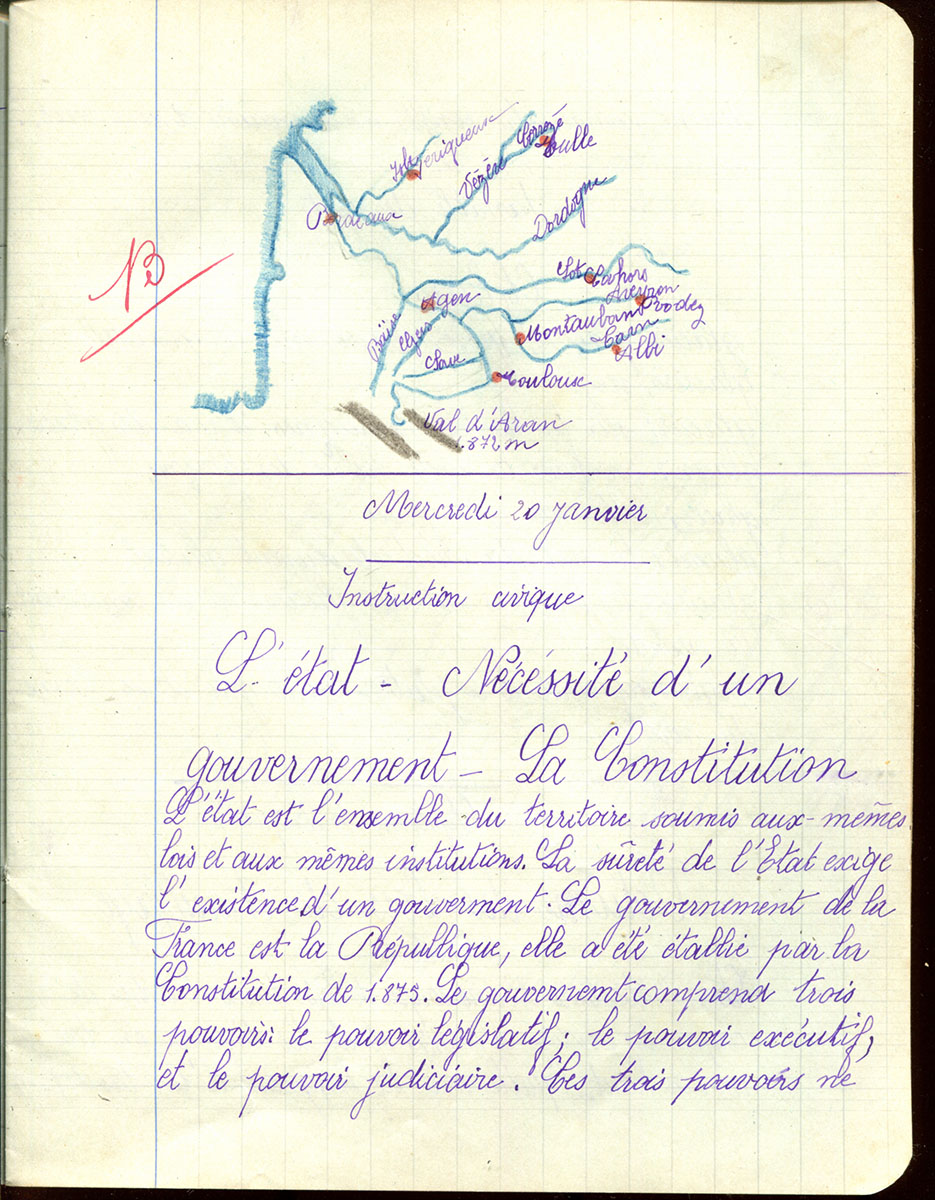 Isle Périgueux
Vézère
Corrèze
Tulle
Bordeaux
Dordogne
Lot Cahors
Aveyron
Rodez
Agen
Baïse
Gers
Montauban
Tarn
Albi
Save
Toulouse
Val d'Aran
1.872 m
Mercredi 20 Janvier
Instruction civique
L'état - Nécéssité d'un
gouvernement - La Constitution
L'état est l'ensemble du territoire soumis aux-mêmes
lois et aux mêmes institutions. La sûreté de l'Etat exige
l'existence d'un gouverment. Le gouvernement de la
France est la République, elle a été établie par la
Constitution de 1.875. Le gouvernemt comprend trois
pouvoirs: le pouvoir législatif; le pouvoir exécutif,
et le pouvoir judiciaire. Ces trois pouvoirs ne